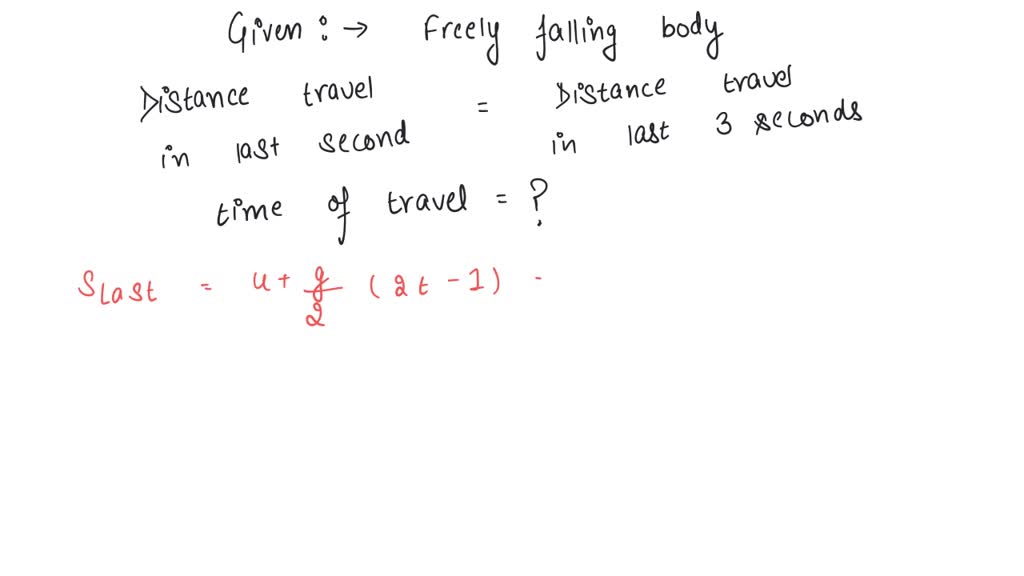 Given : → Freely falling body
Distance travel = Distance travel
in last second in last 3 seconds
time of travel = ?
SLast = u + g/2 (2t - 1) -